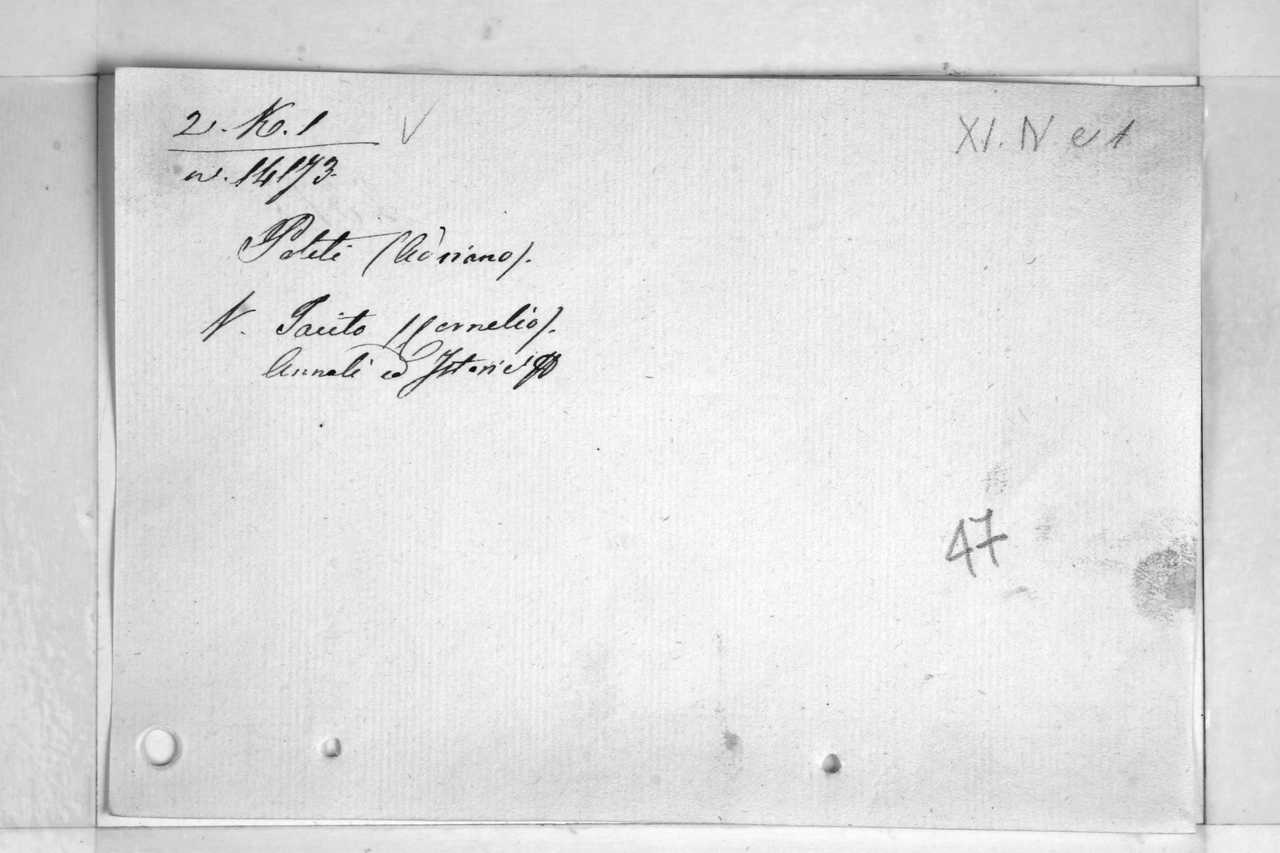 2. K. 1 V
XI. IV. e 1
n. 14173.
Politi (Adriano).
V. Tacito (Cornelio).
Annali ed Istorie
47